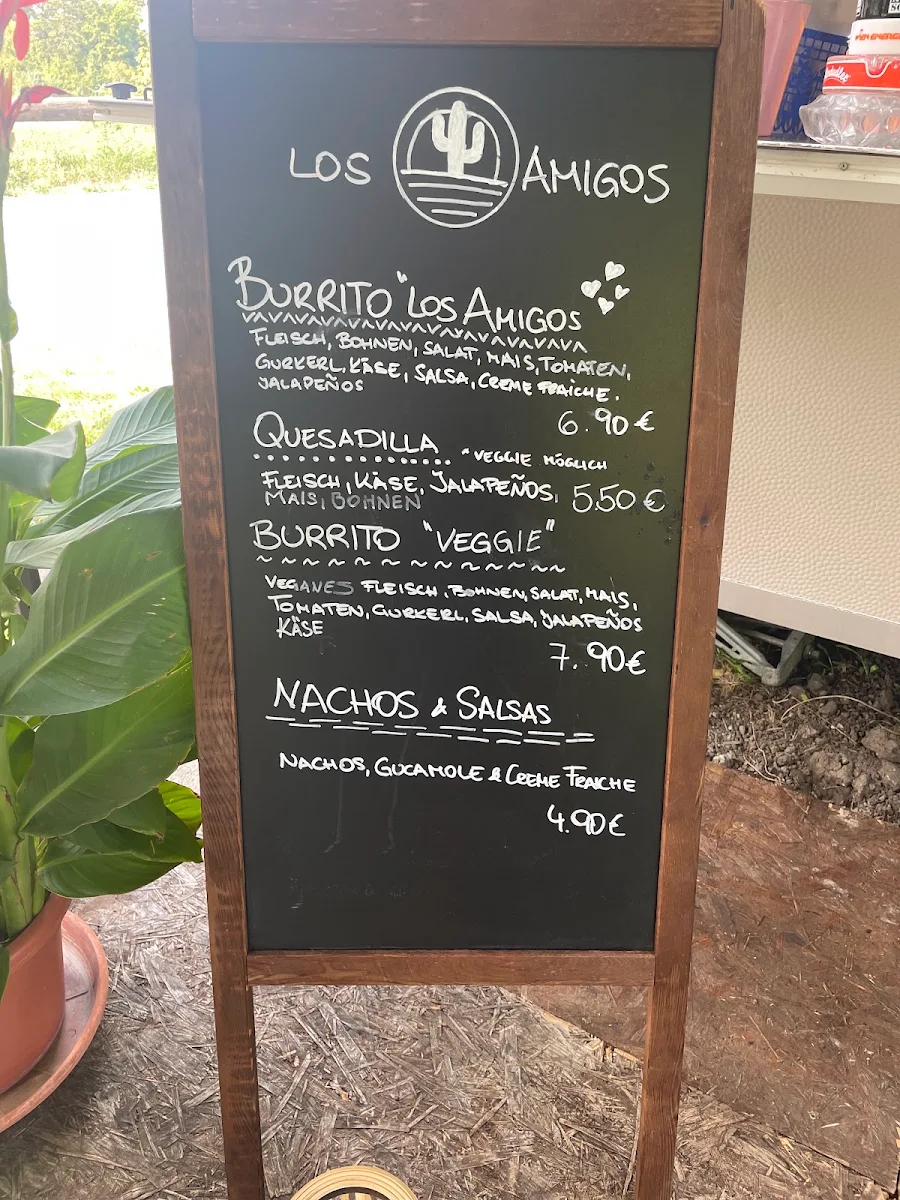 LOS AMIGOS
BURRITO "LOS AMIGOS
FLEISCH, BOHNEN, SALAT, MAIS, TOMATEN,
GURKERL, KÄSE, SALSA, CREME FRAICHE.
JALAPEÑOS
6.90 €
QUESADILLA ~VEGGIE MÖGLICH
FLEISCH, KÄSE, JALAPEÑOS, 5.50 €
MAIS, BOHNEN
BURRITO "VEGGIE"
VEGANES FLEISCH, BOHNEN, SALAT, MAIS,
TOMATEN, GURKERL, SALSA, JALAPEÑOS
KÄSE
7.90€
NACHOS & SALSAS
NACHOS, GUCAMOLE & CREME FRAICHE
4.90€